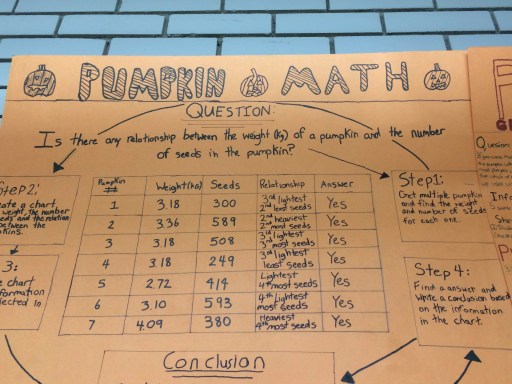 PUMPKIN MATH
QUESTION:
Is there any relationship between the weight (kg) of a pumpkin and the number
of seeds in the pumpkin?
Pumpkin # Weight (kg) Seeds Relationship Answer
1 3.18 300 3rd lightest 2nd least seeds Yes
2 3.36 589 2nd heaviest 2nd most seeds Yes
3 3.18 508 3rd lightest 3rd most seeds Yes
4 3.18 249 3rd lightest least seeds Yes
5 2.72 414 Lightest 4th most seeds Yes
6 3.10 593 4th lightest most seeds Yes
7 4.09 380 Heaviest 4th most seeds Yes
Step 1:
Get multiple pumpkin
and find the weight
and number of seeds
for each one.
Step 2:
eate a chart
weight, the number
eeds and the relation
between the
kins.
3:
e chart
formation
llected in
Step 4:
Find a answer and
write a conclusion based
on the information
in the chart.
Conclusion
Question